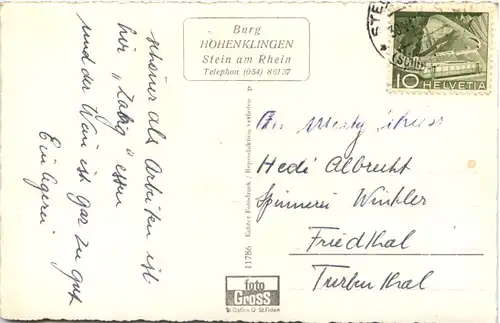 Burg
HOHENKLINGEN
Stein am Rhein
Telephon (054) 86137
STEI
10 HELVETIA
schöner als Arbeiten ist
hier „Zabig" essen
und der Wein ist gar zu gut
11786 Echter Fotodruck / Reproduktion verboten
Hedi Albrecht
Spinnerei Winkler
Friedthal
Turbenthal
foto
GROSS
St. Gallen O St. Fiden